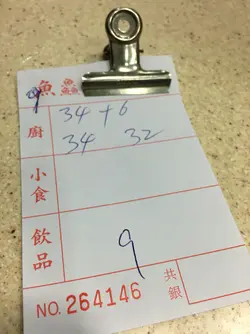 9 魚
廚 34 + 6
34 32
小食
飲品 9
NO. 264146 共銀